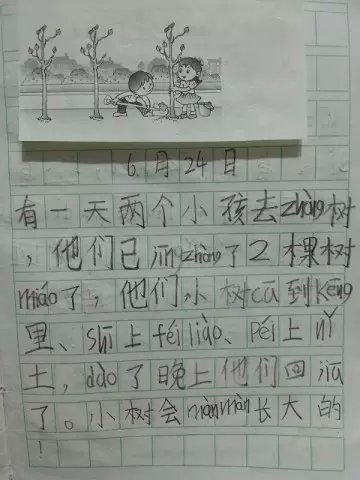 6月24日
有一天两个小孩去zhòng树
,他们已jīngzhòng了2棵树
miáo了,他们,小树cā到kēng
里、sūī上féiliào、péi上nǐ
土,dào了晚上他们回jiā
了。小树会mànmàn长大的
!